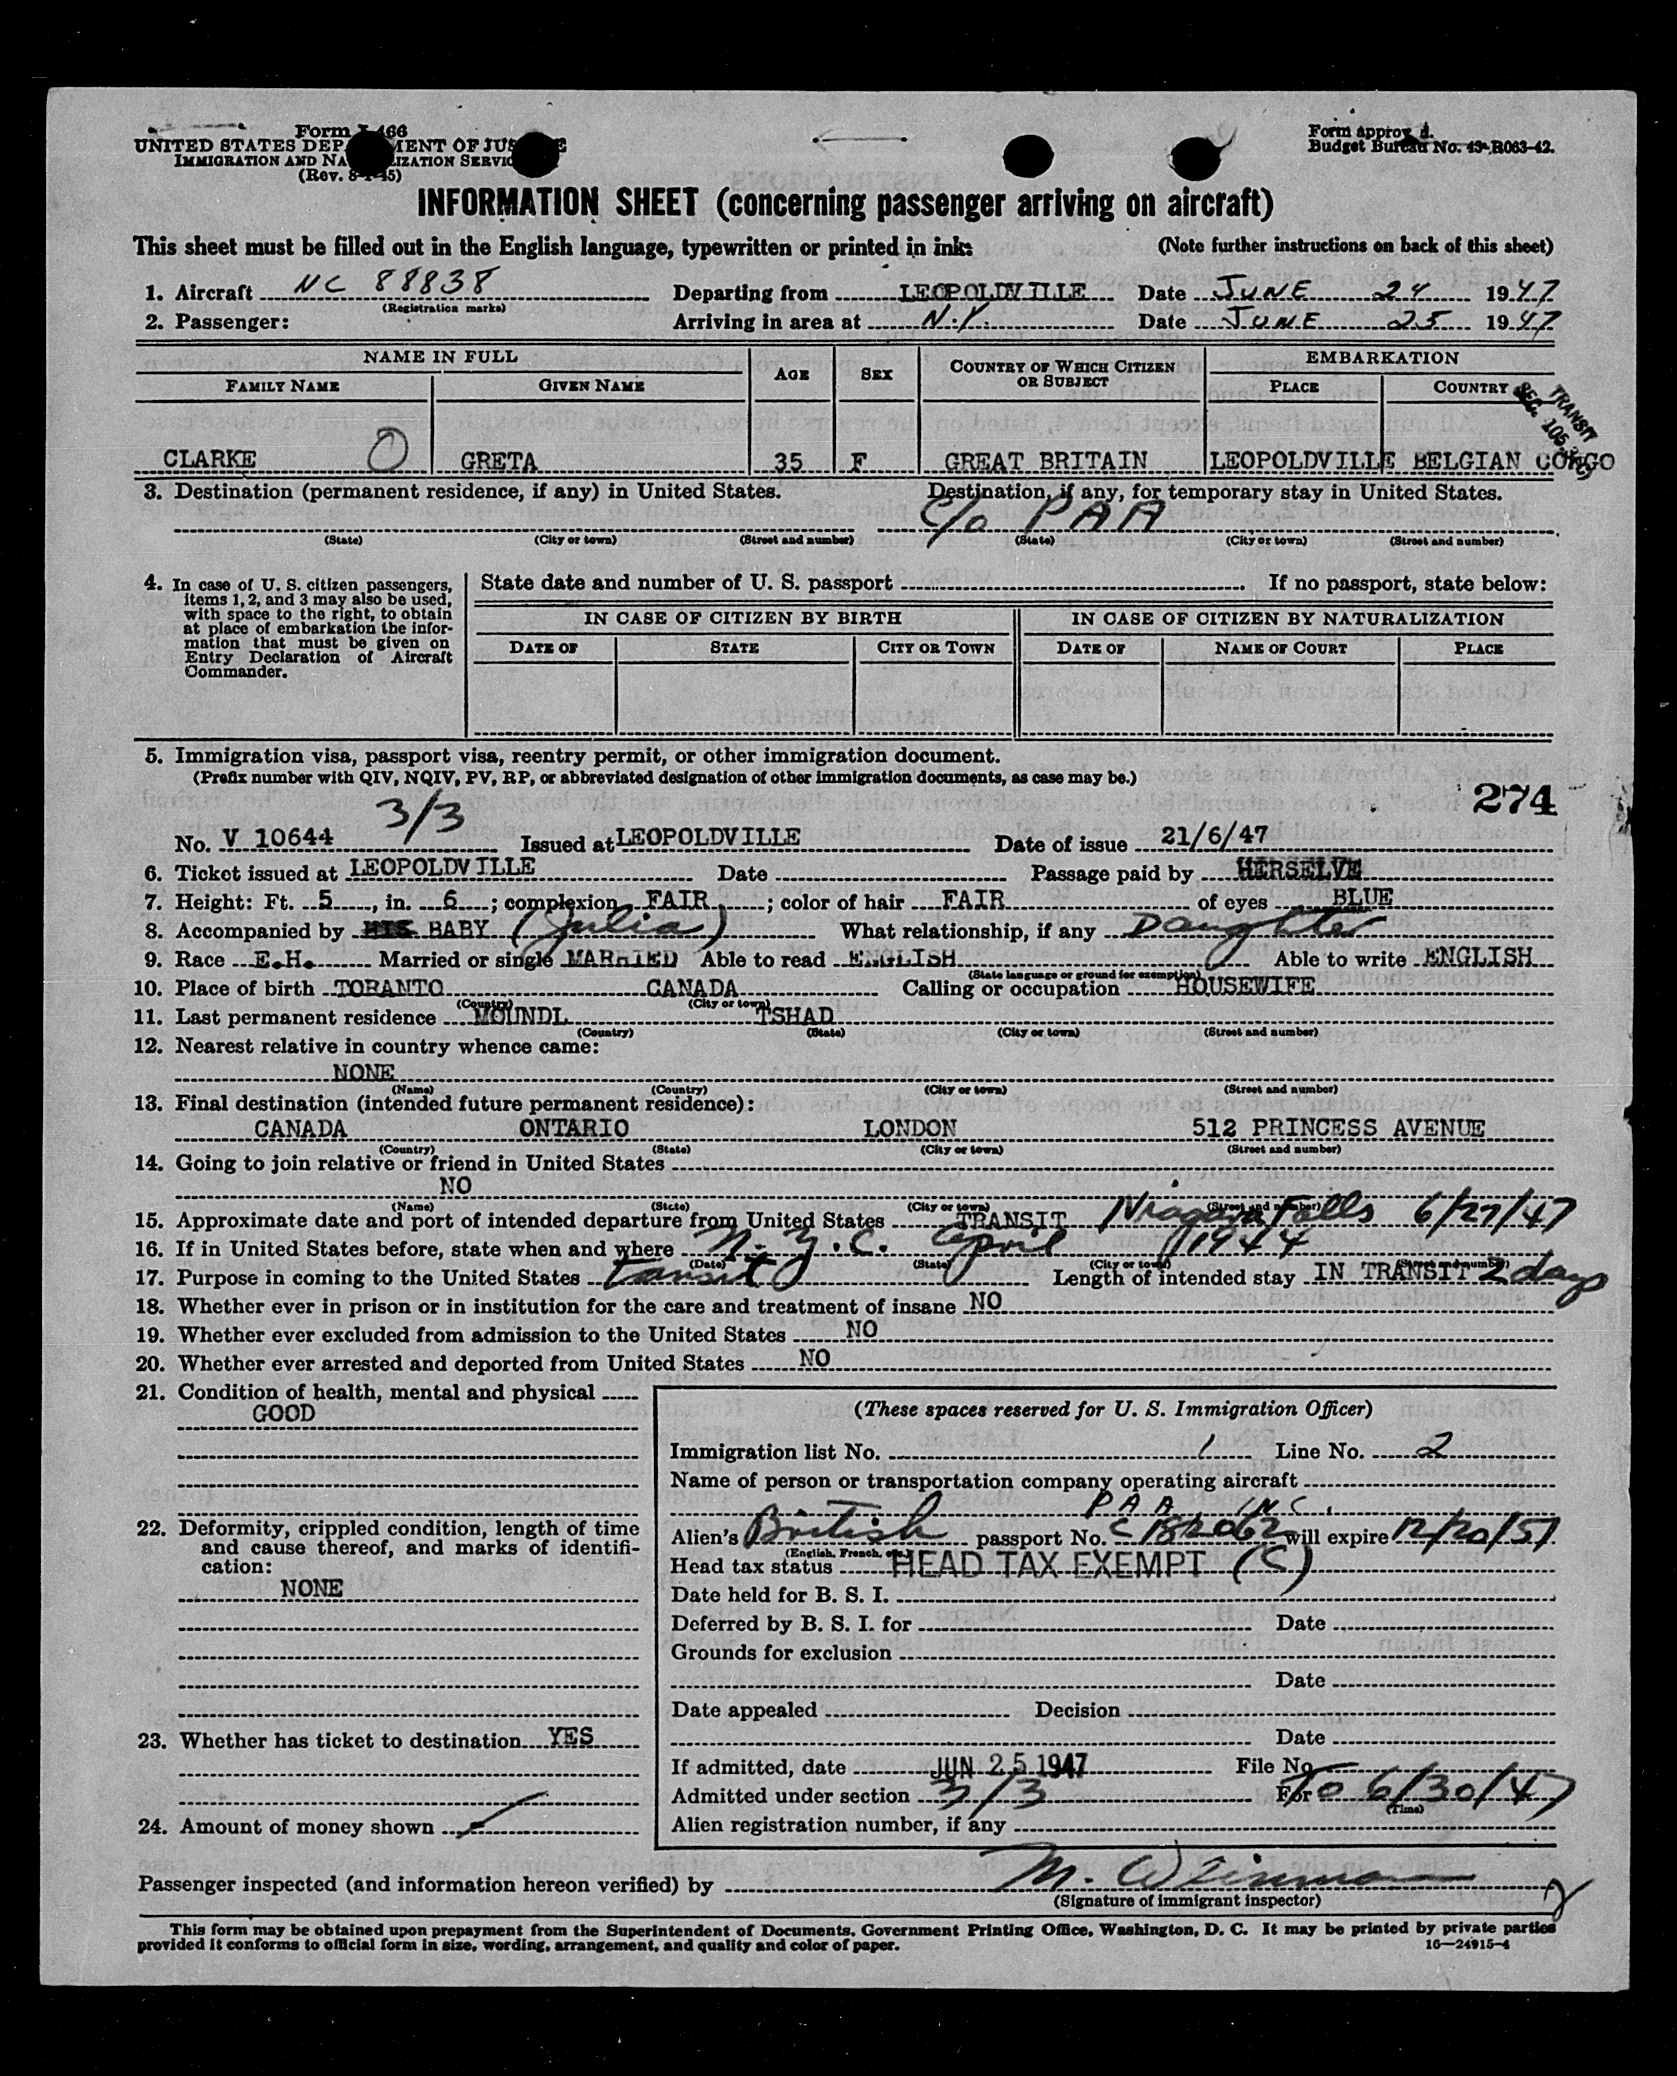 Form I-466
UNITED STATES DEPARTMENT OF JUSTICE
IMMIGRATION AND NATURALIZATION SERVICE
(Rev. 8-1-45)
Form approved.
Budget Bureau No. 43-R063-42.
INFORMATION SHEET (concerning passenger arriving on aircraft)
This sheet must be filled out in the English language, typewritten or printed in ink: (Note further instructions on back of this sheet)
1. Aircraft NC 88838 Departing from LEOPOLDVILLE Date JUNE 24 1947
(Registration marks)
2. Passenger: Arriving in area at N.Y. Date JUNE 25 1947
NAME IN FULL AGE SEX COUNTRY OF WHICH CITIZEN OR SUBJECT EMBARKATION
FAMILY NAME GIVEN NAME PLACE COUNTRY
TRANSIT
CLARKE O GRETA 35 F GREAT BRITAIN LEOPOLDVILLE BELGIAN CONGO
3. Destination (permanent residence, if any) in United States. Destination, if any, for temporary stay in United States.
c/o PAA
(State) (City or town) (Street and number) (State) (City or town) (Street and number)
4. In case of U. S. citizen passengers, items 1, 2, and 3 may also be used, with space to the right, to obtain at place of embarkation the information that must be given on Entry Declaration of Aircraft Commander.
State date and number of U. S. passport If no passport, state below:
IN CASE OF CITIZEN BY BIRTH IN CASE OF CITIZEN BY NATURALIZATION
DATE OF STATE CITY OR TOWN DATE OF NAME OF COURT PLACE
5. Immigration visa, passport visa, reentry permit, or other immigration document.
(Prefix number with QIV, NQIV, PV, RP, or abbreviated designation of other immigration documents, as case may be.)
274
3/3
No. V 10644 Issued at LEOPOLDVILLE Date of issue 21/6/47
6. Ticket issued at LEOPOLDVILLE Date Passage paid by HERSELVE
7. Height: Ft. 5, in. 6; complexion FAIR; color of hair FAIR of eyes BLUE
8. Accompanied by HIS BABY (Julia) What relationship, if any Daughter
9. Race E.H. Married or single MARRIED Able to read ENGLISH Able to write ENGLISH
(State language or ground for exemption)
10. Place of birth TORANTO CANADA Calling or occupation HOUSEWIFE
(Country) (City or town)
11. Last permanent residence MOUNDL TSHAD
(Country) (State) (City or town) (Street and number)
12. Nearest relative in country whence came:
NONE
(Name) (Country) (City or town) (Street and number)
13. Final destination (intended future permanent residence):
CANADA ONTARIO LONDON 512 PRINCESS AVENUE
(Country) (State) (City or town) (Street and number)
14. Going to join relative or friend in United States
NO
(Name) (State) (City or town) (Street and number)
15. Approximate date and port of intended departure from United States TRANSIT Niagara Falls 6/27/47
16. If in United States before, state when and where N.Y.C. April 1944
(Date) (State) (City or town) (Street and number)
17. Purpose in coming to the United States transit Length of intended stay IN TRANSIT 2 days
18. Whether ever in prison or in institution for the care and treatment of insane NO
19. Whether ever excluded from admission to the United States NO
20. Whether ever arrested and deported from United States NO
21. Condition of health, mental and physical
GOOD
22. Deformity, crippled condition, length of time and cause thereof, and marks of identification:
NONE
23. Whether has ticket to destination YES
24. Amount of money shown
(These spaces reserved for U. S. Immigration Officer)
Immigration list No. 1 Line No. 2
Name of person or transportation company operating aircraft
PAA INC.
Alien's British passport No. will expire
(English, French, etc.)
Head tax status HEAD TAX EXEMPT (C)
Date held for B. S. I.
Deferred by B. S. I. for Date
Grounds for exclusion
Date
Date appealed Decision
Date
If admitted, date JUN 25 1947 File No.
Admitted under section 3/3 For To 6/30/47
(Time)
Alien registration number, if any
Passenger inspected (and information hereon verified) by M.
(Signature of immigrant inspector)
This form may be obtained upon prepayment from the Superintendent of Documents, Government Printing Office, Washington, D. C. It may be printed by private parties
provided it conforms to official form in size, wording, arrangement, and quality and color of paper. 16—24915-4